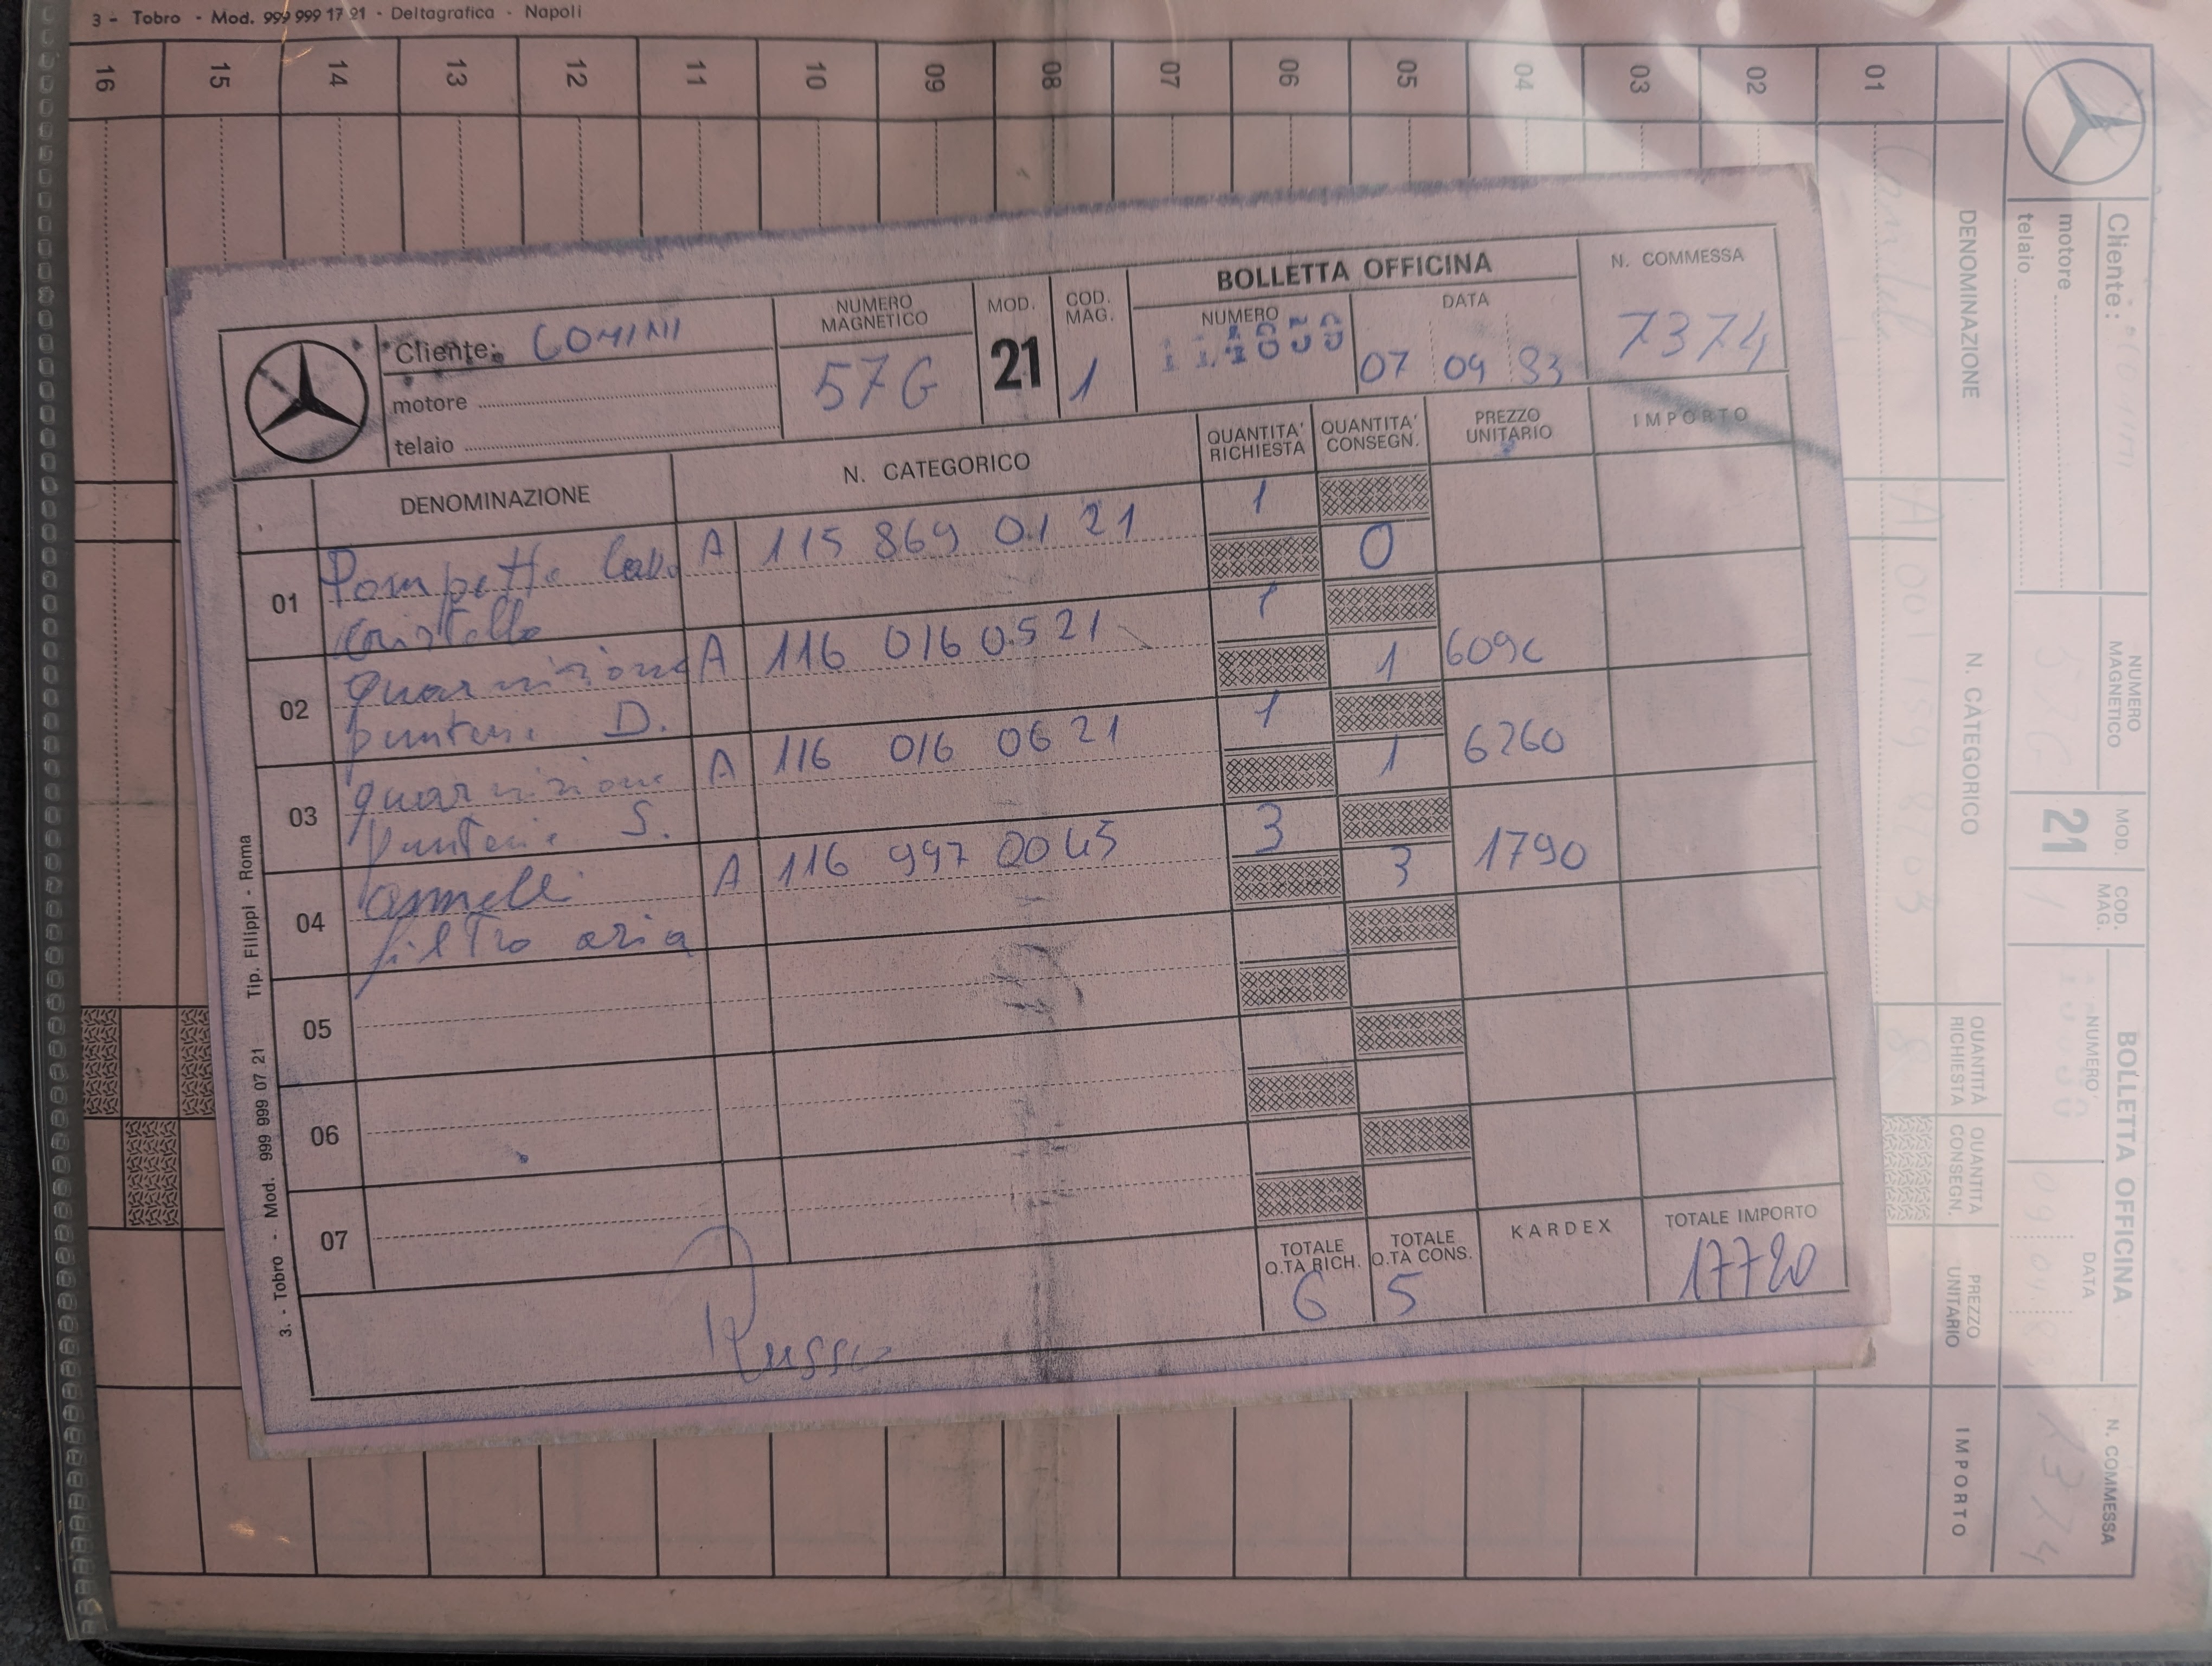 3 - Tobro - Mod. 999 999 17 21 - Deltagrafica - Napoli
16 15 14 13 12 11 10 09 08 07 06 05 04 03 02 01
Cliente: COMINI
motore
telaio
NUMERO MAGNETICO
57G
MOD.
21
COD. MAG.
1
BOLLETTA OFFICINA
NUMERO
DATA
07 09 83
N. COMMESSA
7374
DENOMINAZIONE
N. CATEGORICO
QUANTITA' RICHIESTA
QUANTITA' CONSEGN.
PREZZO UNITARIO
IMPORTO
01 Pompetta Lav. A 115 869 01 21 1
cristallo 0
02 guarnizione A 116 016 05 21 1
punterie D. 1 609
03 guarnizione A 116 016 06 21 1
punterie S. 1 6260
04 anelli A 116 997 00 45 3
filtro aria 3 1790
05
06
07
TOTALE Q.TA RICH.
6
TOTALE Q.TA CONS.
5
KARDEX
TOTALE IMPORTO
17720
Russo
3. - Tobro - Mod. 999 999 07 21 Tip. Filippi - Roma
Cliente:
motore
telaio
NUMERO MAGNETICO
MOD.
21
COD. MAG.
1
BOLLETTA OFFICINA
NUMERO
DATA
N. COMMESSA
7374
DENOMINAZIONE
N. CATEGORICO
QUANTITA' RICHIESTA
QUANTITA' CONSEGN.
PREZZO UNITARIO
IMPORTO